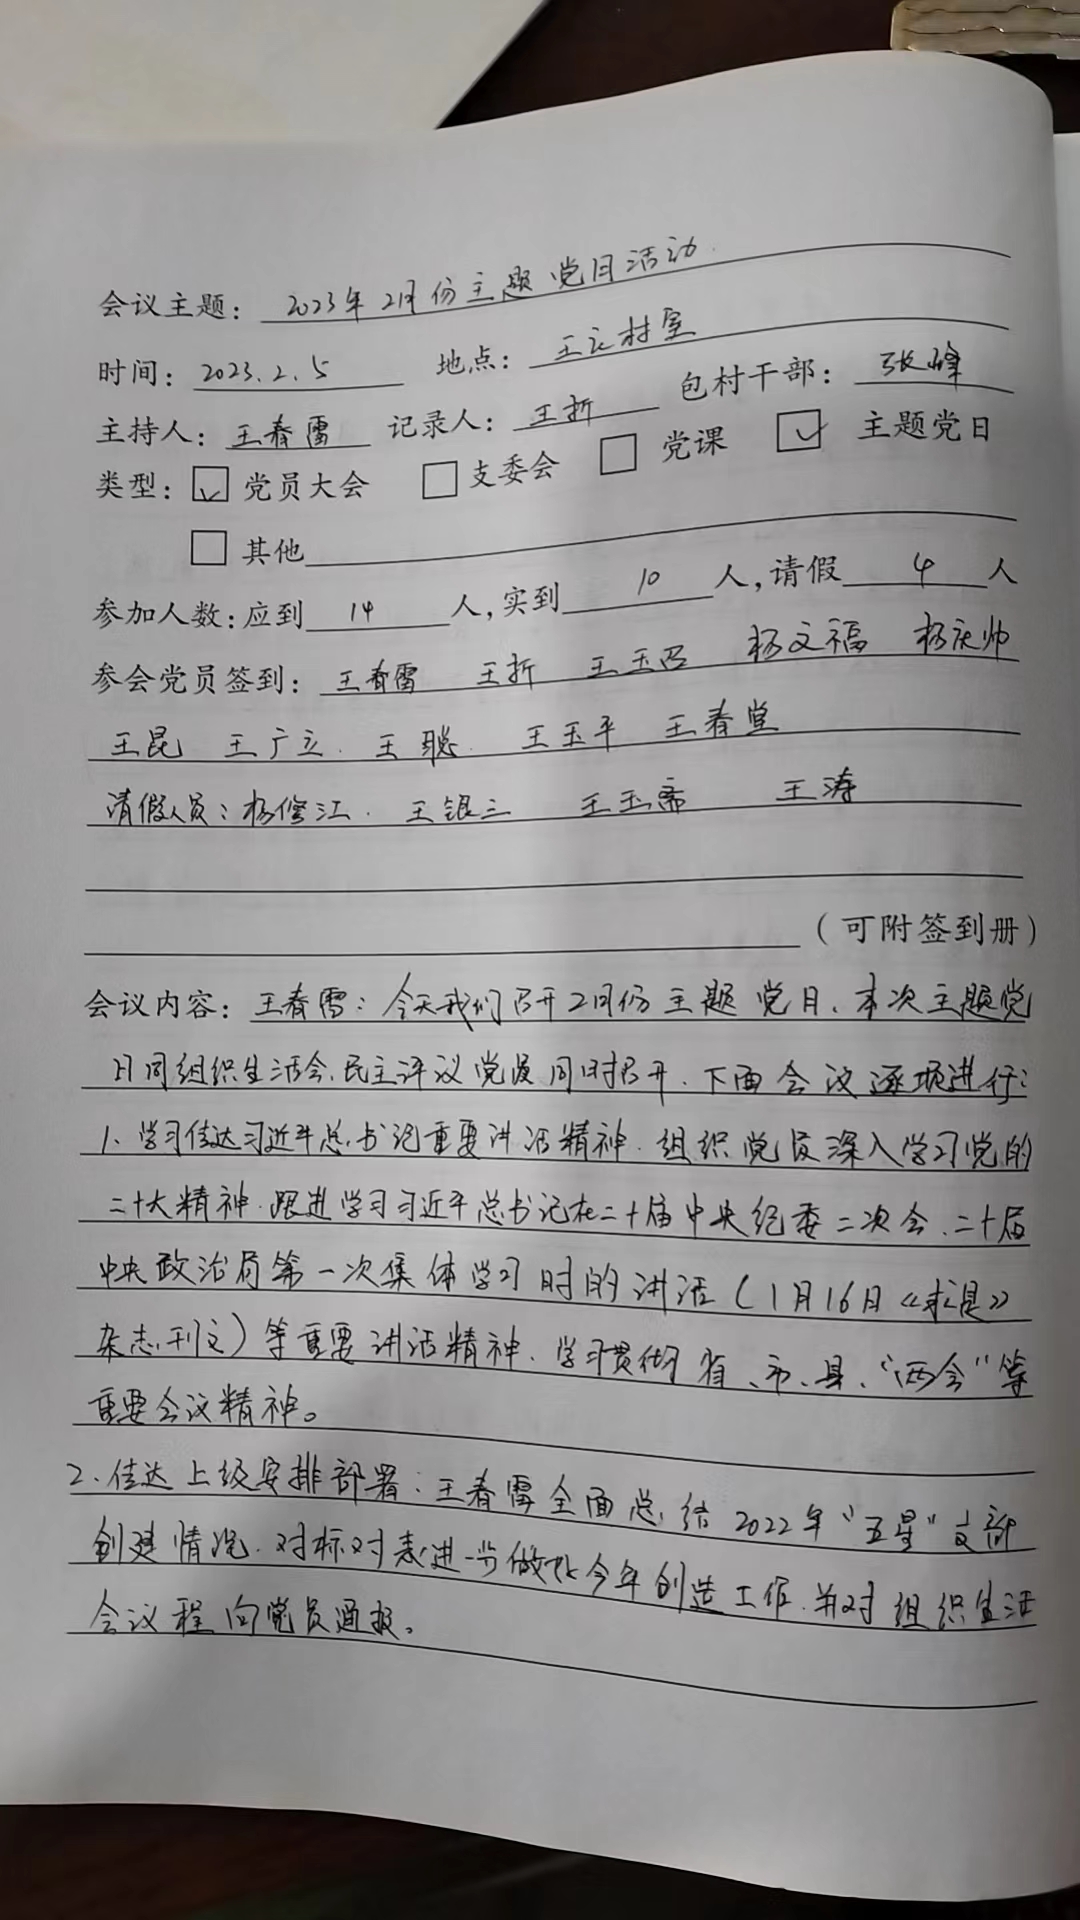 会议主题：2023年2月份主题党日活动
时间：2023.2.5 地点：王 村室
主持人：王春雷 记录人：王折 包村干部：张峰
类型：☑党员大会 □支委会 □党课 ☑主题党日
□其他
参加人数：应到 14 人，实到 10 人，请假 4 人
参会党员签到：王春雷 王折 王玉 杨文福 杨庆帅
王昆 王广立 王聪 王玉平 王春堂
请假人员：杨修江 王银三 王玉斋 王涛
（可附签到册）
会议内容：王春雷：今天我们召开2月份主题党日、本次主题党
日同组织生活会、民主评议党员同时召开、下面会议逐项进行：
1、学习传达习近平总书记重要讲话精神．组织党员深入学习党的
二十大精神．跟进学习习近平总书记在二十届中央纪委二次会、二十届
中央政治局第一次集体学习时的讲话（1月16日《求是》
杂志刊文）等重要讲话精神、学习贯彻省、市、县、“两会”等
重要会议精神。
2、传达上级安排部署：王春雷全面总结2022年“五星”支部
创建情况．对标对表进一步做好今年创造工作．并对组织生活
会议程向党员通报。